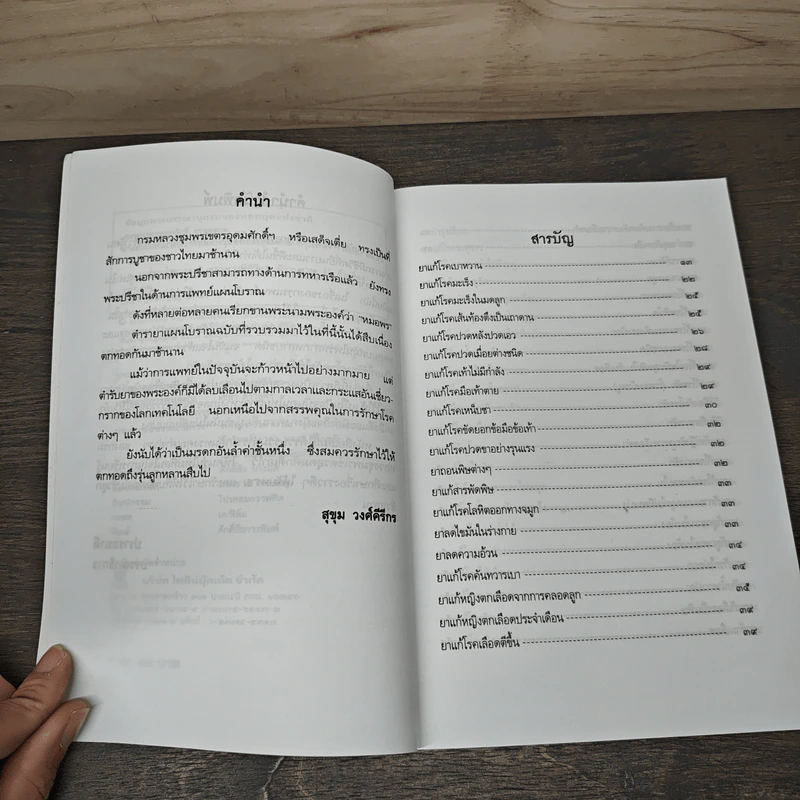 คำนำ
กรมหลวงชุมพรเขตรอุดมศักดิ์ฯ หรือเสด็จเตี่ย ทรงเป็นที่
สักการบูชาของชาวไทยมาช้านาน
นอกจากพระปรีชาสามารถทางด้านการทหารเรือแล้ว ยังทรง
พระปรีชาในด้านการแพทย์แผนโบราณ
ดังที่หลายต่อหลายคนเรียกขานพระนามพระองค์ว่า "หมอพร"
ตำรายาแผนโบราณฉบับที่รวบรวมมาไว้ในที่นี้นั้นได้สืบเนื่อง
ตกทอดกันมาช้านาน
แม้ว่าการแพทย์ในปัจจุบันจะก้าวหน้าไปอย่างมากมาย แต่
ตำรับยาของพระองค์ก็มิได้ลบเลือนไปตามกาลเวลาและกระแสอันเชี่ยว-
กรากของโลกเทคโนโลยี นอกเหนือไปจากสรรพคุณในการรักษาโรค
ต่างๆ แล้ว
ยังนับได้ว่าเป็นมรดกอันล้ำค่าชั้นหนึ่ง ซึ่งสมควรรักษาไว้ให้
ตกทอดถึงรุ่นลูกหลานสืบไป
สุขุม วงศ์คีรีกร
สารบัญ
ยาแก้โรคเบาหวาน ๑๓
ยาแก้โรคมะเร็ง ๒๒
ยาแก้โรคมะเร็งในมดลูก ๒๕
ยาแก้โรคเส้นท้องตึงเป็นเถาดาน ๒๕
ยาแก้โรคปวดหลังปวดเอว ๒๖
ยาแก้โรคปวดเมื่อยต่างชนิด ๒๘
ยาแก้โรคเท้าไม่มีกำลัง ๒๙
ยาแก้โรคมือเท้าตาย ๒๙
ยาแก้โรคเหน็บชา ๓๐
ยาแก้โรคขัดยอกข้อมือข้อเท้า ๓๒
ยาแก้โรคปวดขาอย่างรุนแรง ๓๒
ยาถอนพิษต่างๆ ๓๒
ยาแก้สารพัดพิษ ๓๓
ยาแก้โรคโลหิตออกทางจมูก ๓๓
ยาลดไขมันในร่างกาย ๓๓
ยาลดความอ้วน ๓๔
ยาแก้โรคคันทวารเบา ๓๔
ยาแก้หญิงตกเลือดจากการคลอดลูก ๓๕
ยาแก้หญิงตกเลือดประจำเดือน ๓๙
ยาแก้โรคเลือดตีขึ้น ๓๙